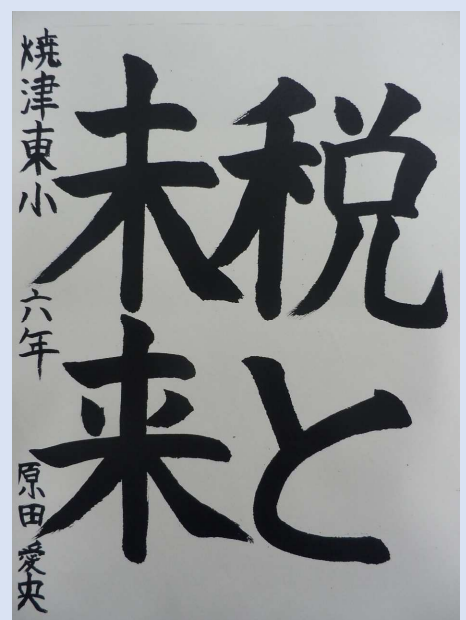 税と
未来
焼津東小 六年 原田愛央